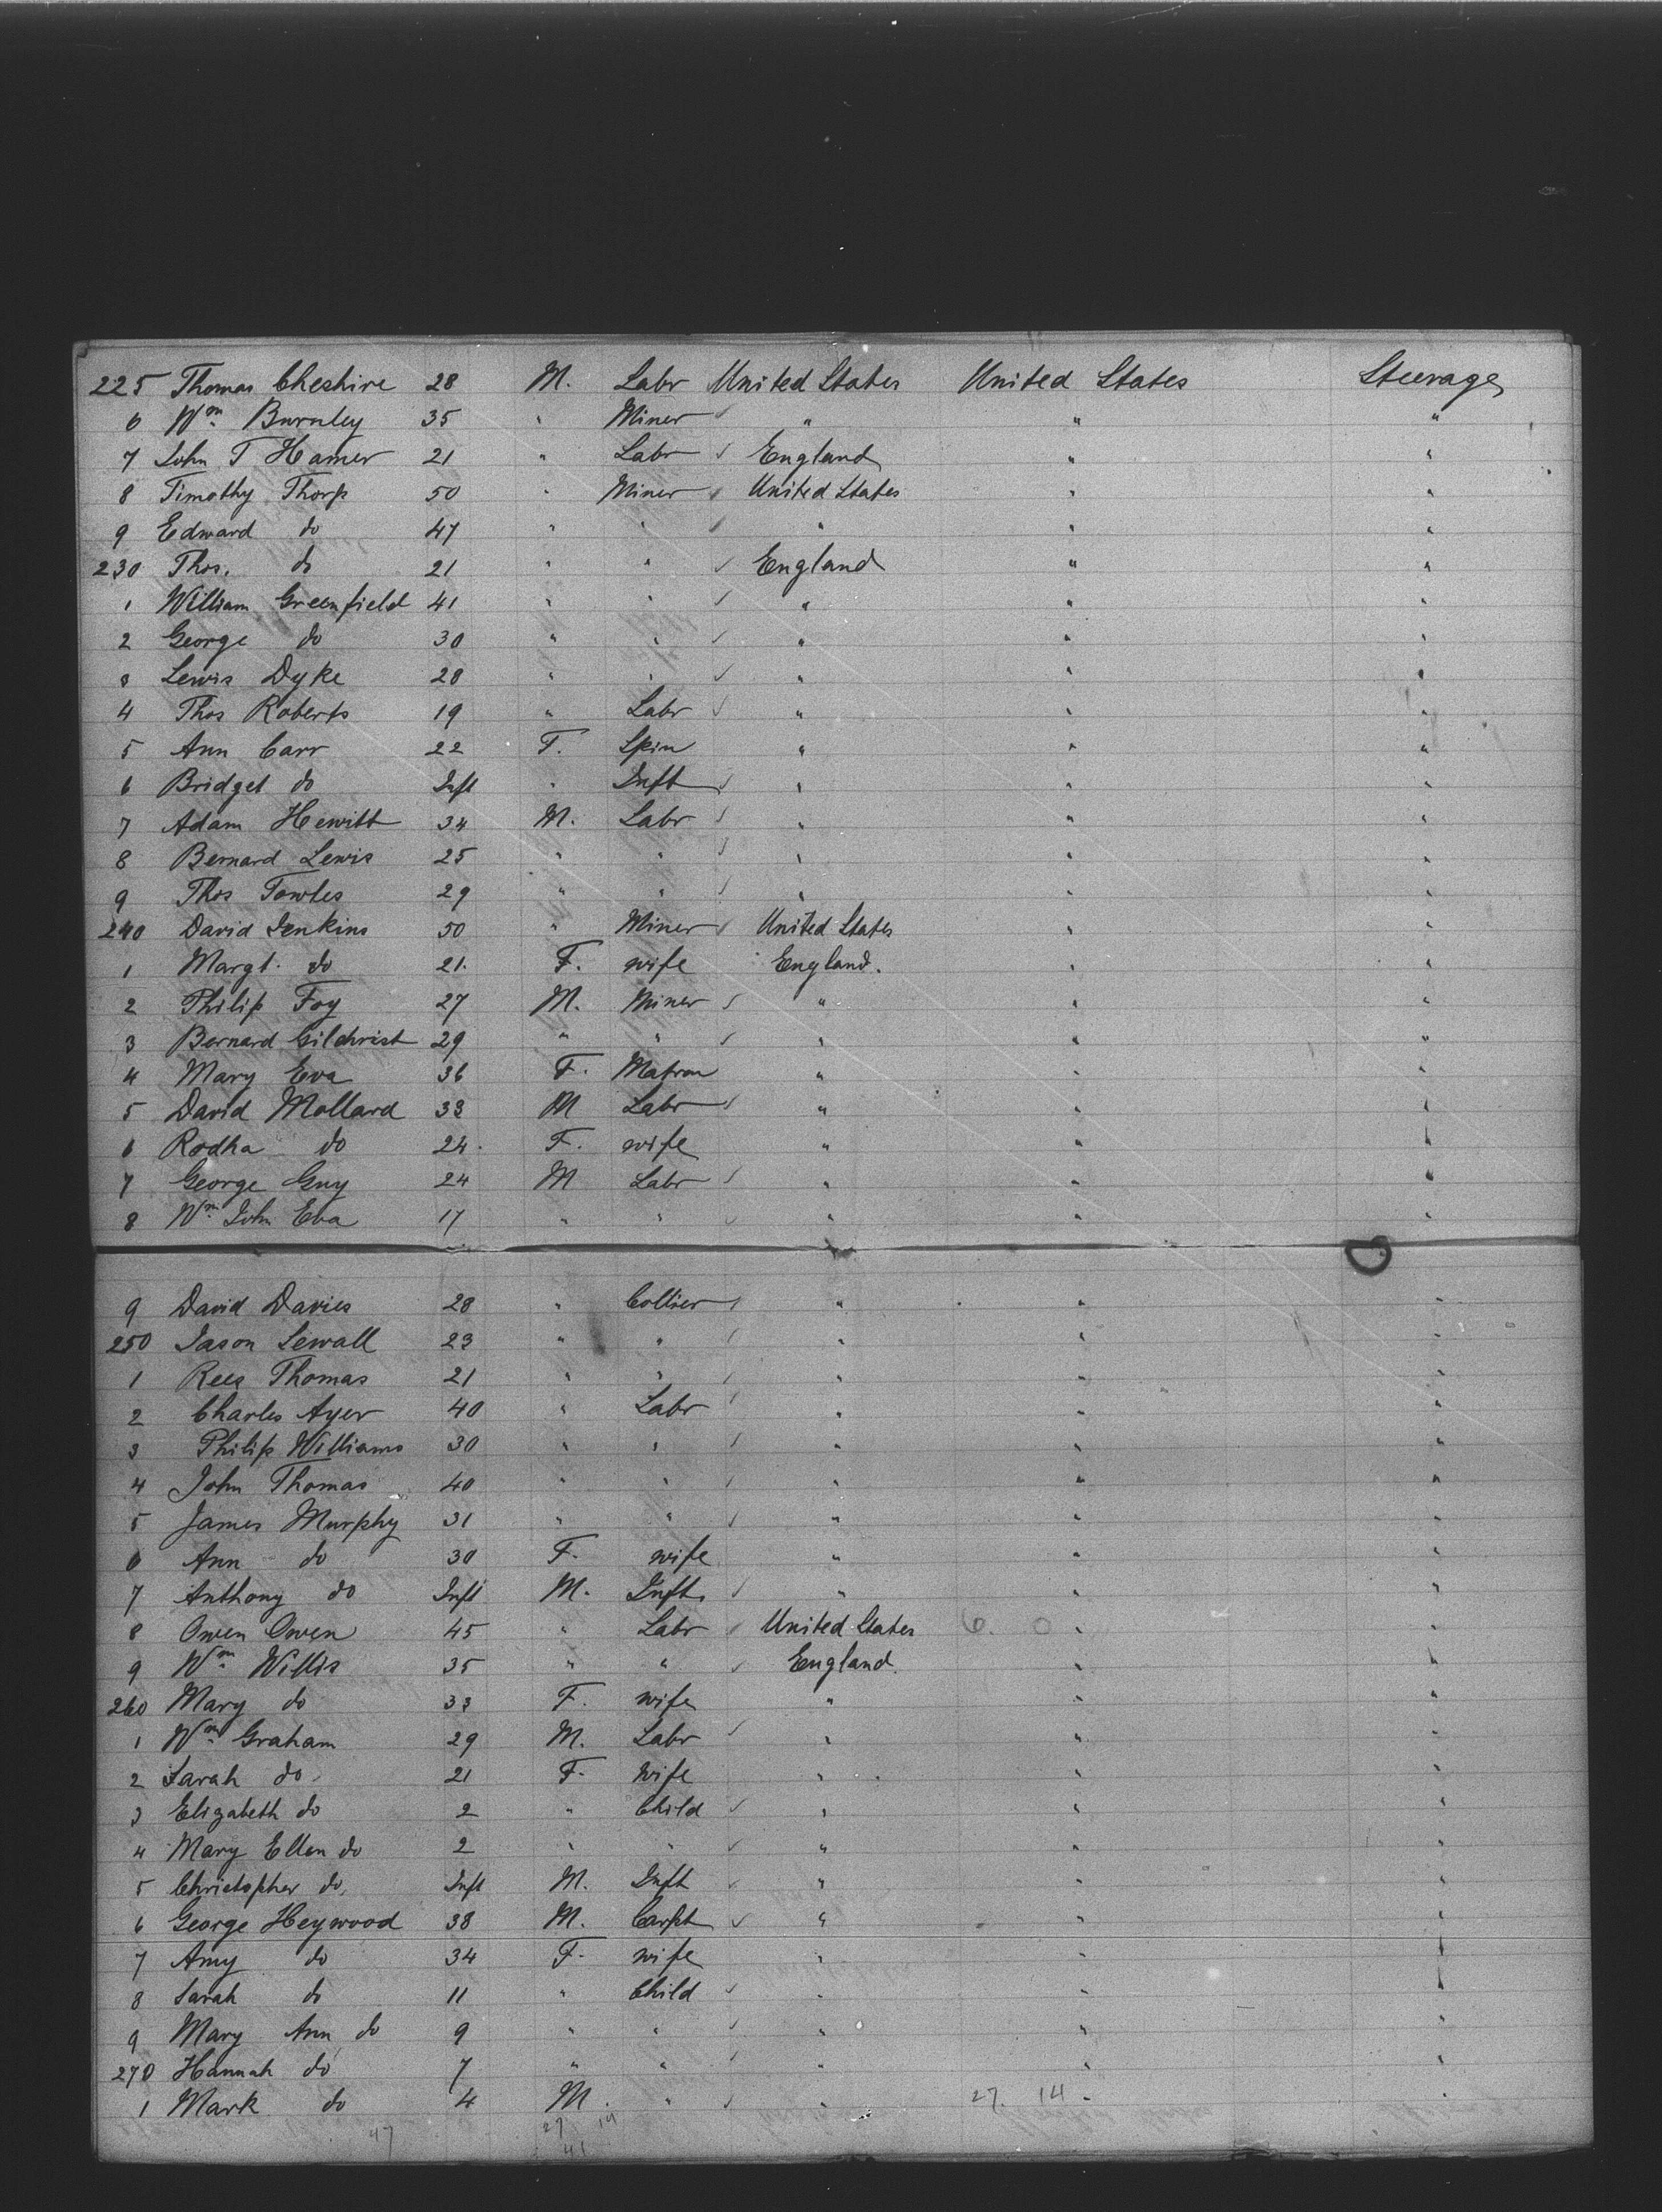 225 Thomas Cheshire 28 M. Labr United States United States Steerage
6 Wm Burnley 35 " Miner ✓ " " "
7 John T Hamer 21 " Labr ✓ England " "
8 Timothy Thorp 50 " Miner ✓ United States " "
9 Edward do 47 " " ✓ " " "
230 Thos. do 21 " " ✓ England " "
1 William Greenfield 41 " " ✓ " " "
2 George do 30 " " ✓ " " "
3 Lewis Dyke 28 " " ✓ " " "
4 Thos Roberts 19 " Labr ✓ " " "
5 Ann Carr 22 F. Spin " " "
6 Bridget do Inft " Inft ✓ " " "
7 Adam Hewitt 34 M. Labr ✓ " " "
8 Bernard Lewis 25 " " ✓ " " "
9 Thos Fowles 29 " " ✓ " " "
240 David Jenkins 50 " Miner ✓ United States " "
1 Margt. do 21. F. wife England. " "
2 Philip Foy 27 M. Miner ✓ " " "
3 Bernard Gilchrist 29 " " ✓ " " "
4 Mary Eva 36 F. Matron " " "
5 David Mollard 33 M Labr ✓ " " "
6 Rodha do 24. F. wife " " "
7 George Guy 24 M Labr ✓ " " "
8 Wm John Eva 17 " " ✓ " " "
9 David Davies 28 " Collier ✓ " " "
250 Jason Sewall 23 " " ✓ " " "
1 Rees Thomas 21 " " ✓ " " "
2 Charles Ayer 40 " Labr ✓ " " "
3 Philip Williams 30 " " ✓ " " "
4 John Thomas 40 " " ✓ " " "
5 James Murphy 31 " " ✓ " " "
6 Ann do 30 F. wife " " "
7 Anthony do Inft M. Inft. ✓ " " "
8 Owen Owen 45 " Labr ✓ United States 6. 0 " "
9 Wm Willis 35 " " ✓ England. " "
260 Mary do 33 F. wife " " "
1 Wm Graham 29 M. Labr ✓ " " "
2 Sarah do 21 F. Wife " " "
3 Elizabeth do 2 " Child ✓ " " "
4 Mary Ellen do 2 " " ✓ " " "
5 Christopher do. Inft M. Inft ✓ " " "
6 George Heywood 38 M. Carpt ✓ " " "
7 Amy do 34 F. wife " " "
8 Sarah do 11 " Child ✓ " " "
9 Mary Ann do 9 " " ✓ " " "
270 Hannah do 7 " " ✓ " " "
1 Mark do 4 M. " ✓ " 27. 14 " "
47 27 14
41